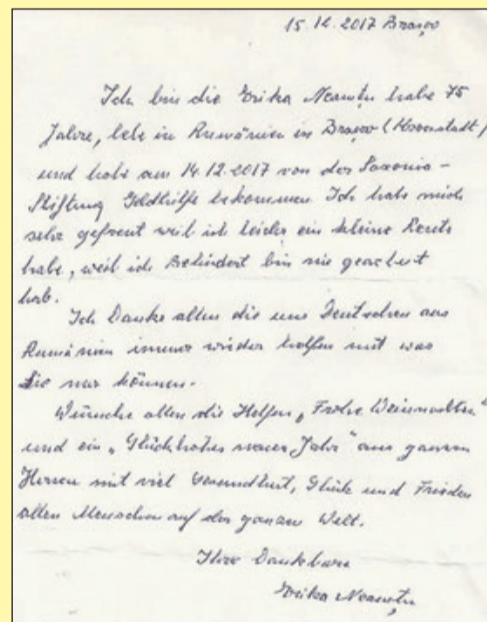 15.12.2017 Brașov
Ich bin die Erika Neamțu habe 75
Jahre, lebe in Rumänien in Brașov (Kronstadt)
und habe am 14.12.2017 von der Saxonia-
Stiftung Geldhilfe bekommen Ich habe mich
sehr gefreut weil ich leider ein kleine Rente
habe, weil ich Behindert bin nie gearbeit
hab.
Ich Danke allen die uns Deutschen aus
Rumänien immer wieder helfen mit was
Sie nur können.
Wünsche allen die Helfen „Frohe Weihnachten"
und ein „Glückhohes neues Jahr" aus ganzem
Herzen mit viel Gesundheit, Glück und Frieden
allen Menschen auf der ganzen Welt.
Ihre Dankbare
Erika Neamțu